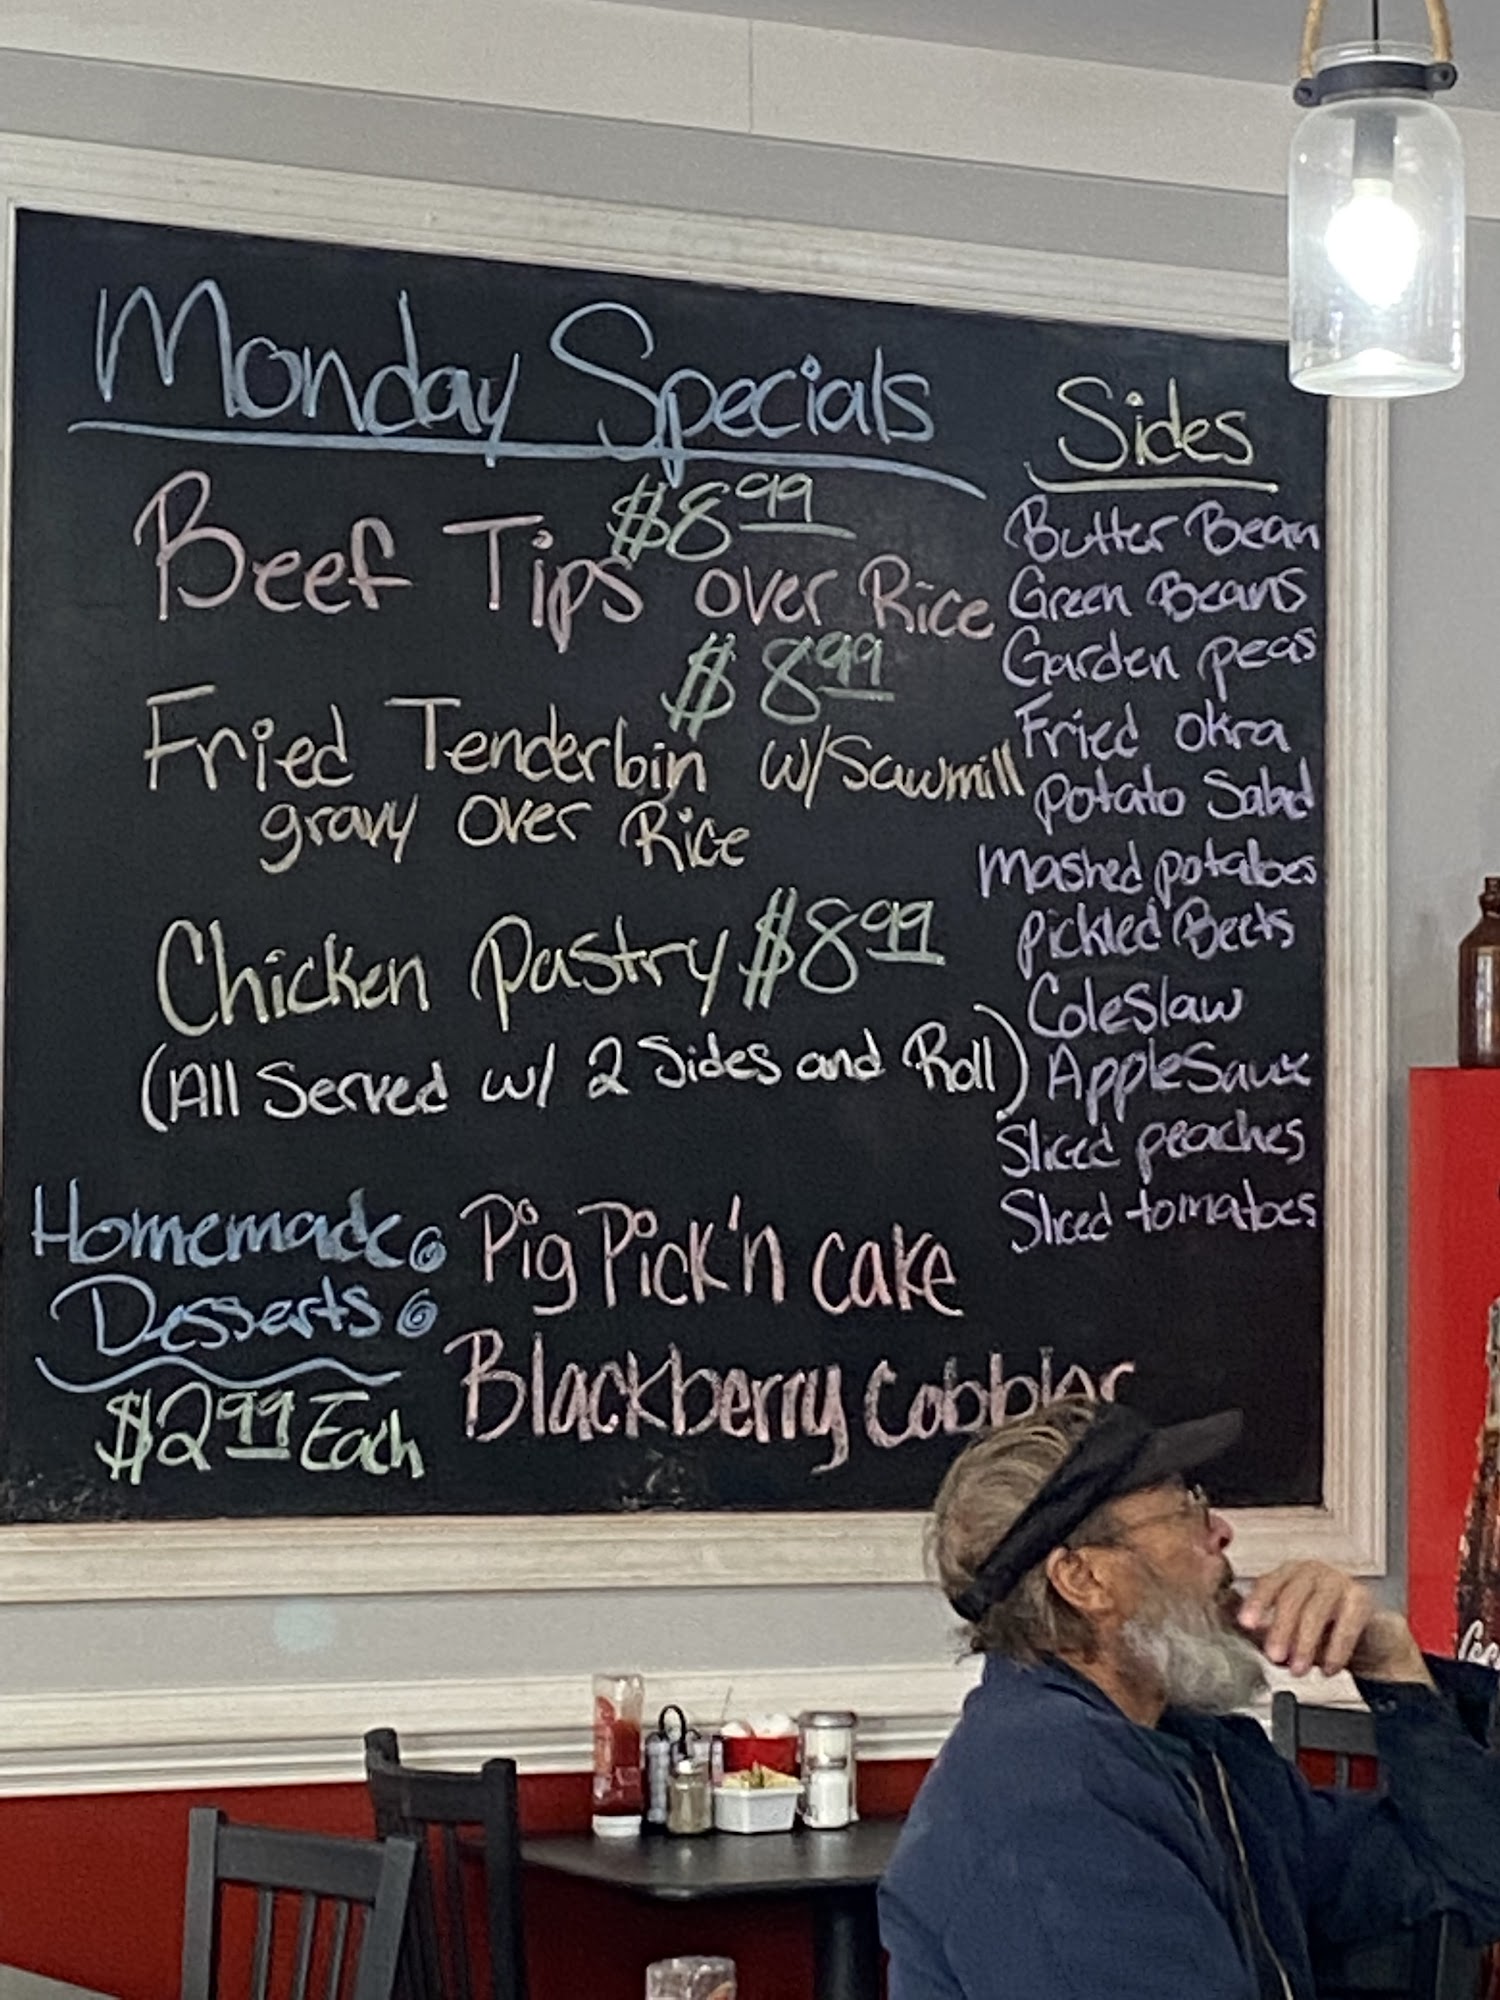 Monday Specials
$8.99
Beef Tips over Rice
$8.99
Fried Tenderloin w/Sawmill
gravy over Rice
Chicken Pastry $8.99
(All Served w/ 2 Sides and Roll)
Homemade
Desserts
$2.99 Each
Pig Pick'n cake
Blackberry Cobbler
Sides
Butter Bean
Green Beans
Garden peas
Fried okra
potato Salad
mashed potatoes
pickled Beets
Coleslaw
AppleSauce
Sliced peaches
Sliced tomatoes